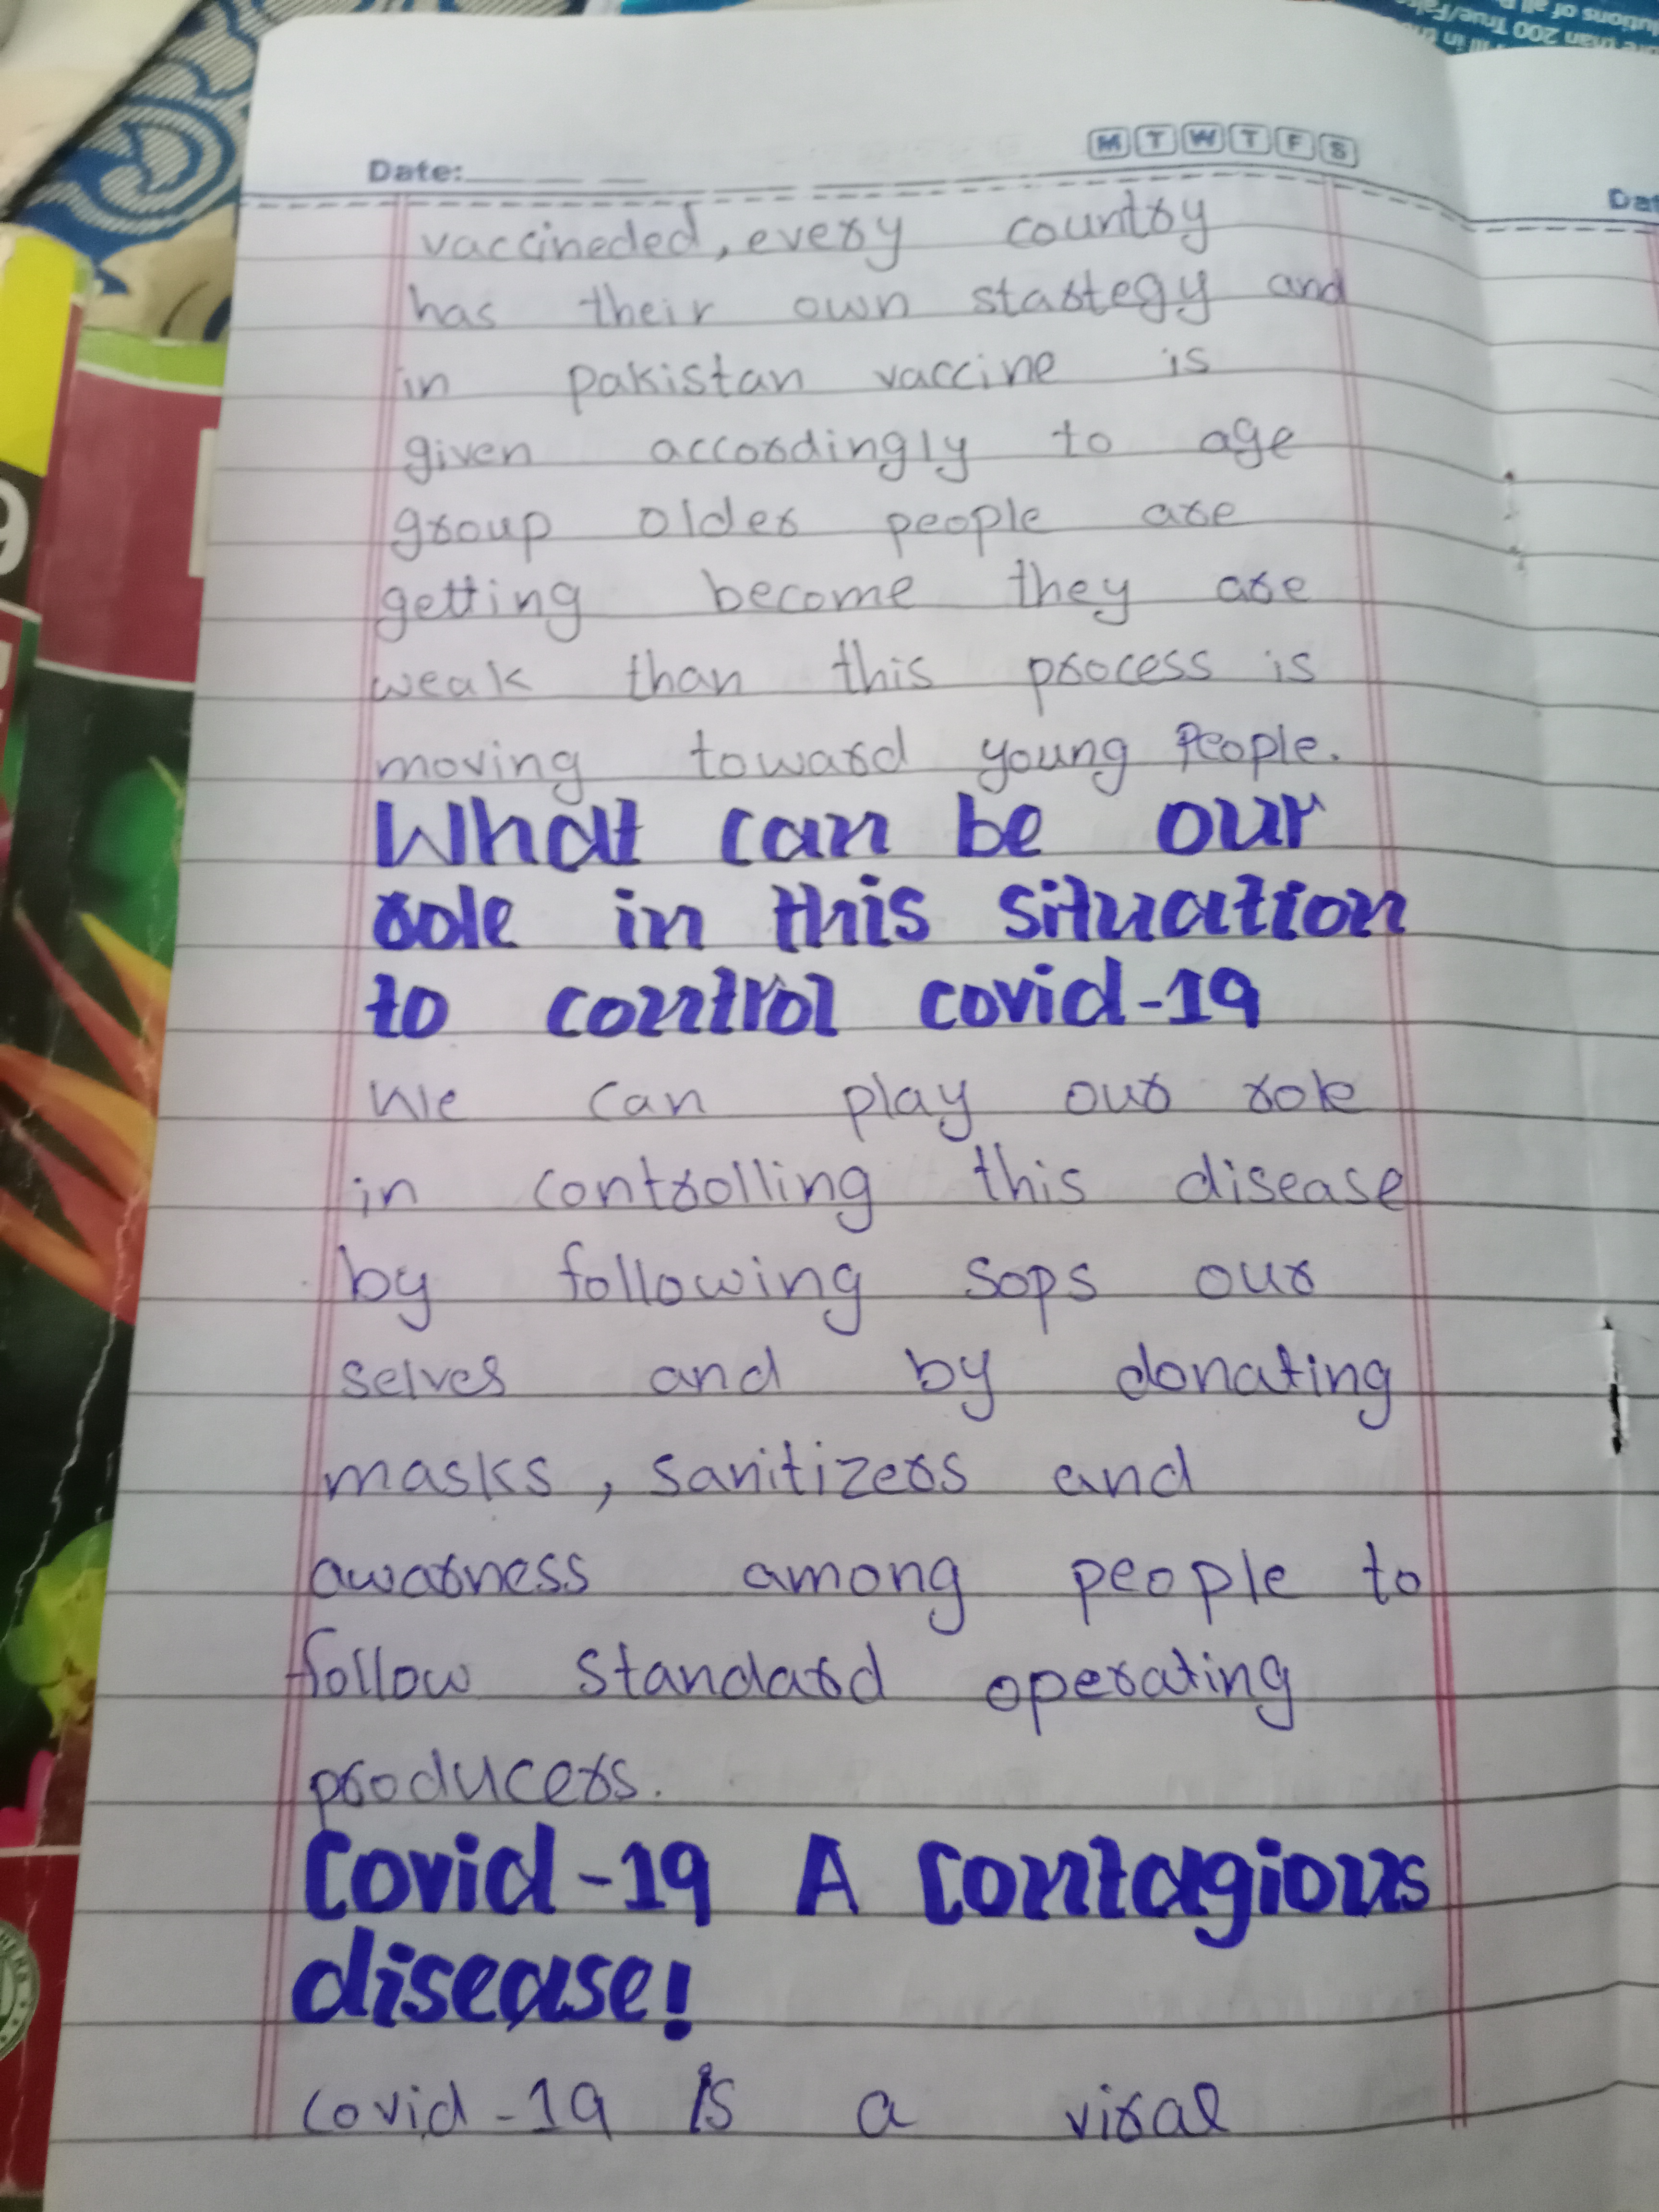 utions of all
ore than 200 True/False
Fill in the
M T W T F S
Date:
Dat
vaccineded, every country
has their own stastegy and
in pakistan vaccine is
given accordingly to age
group older people are
getting become they are
weak than this process is
moving toward young People.
What can be our
role in this situation
to control covid-19
We can play our role
in controlling this disease
by following sops our
selves and by donating
masks, sanitizers and
awarness among people to
follow standard operating
producers.
Covid-19 A Contagious
disease!
Covid-19 is a viral